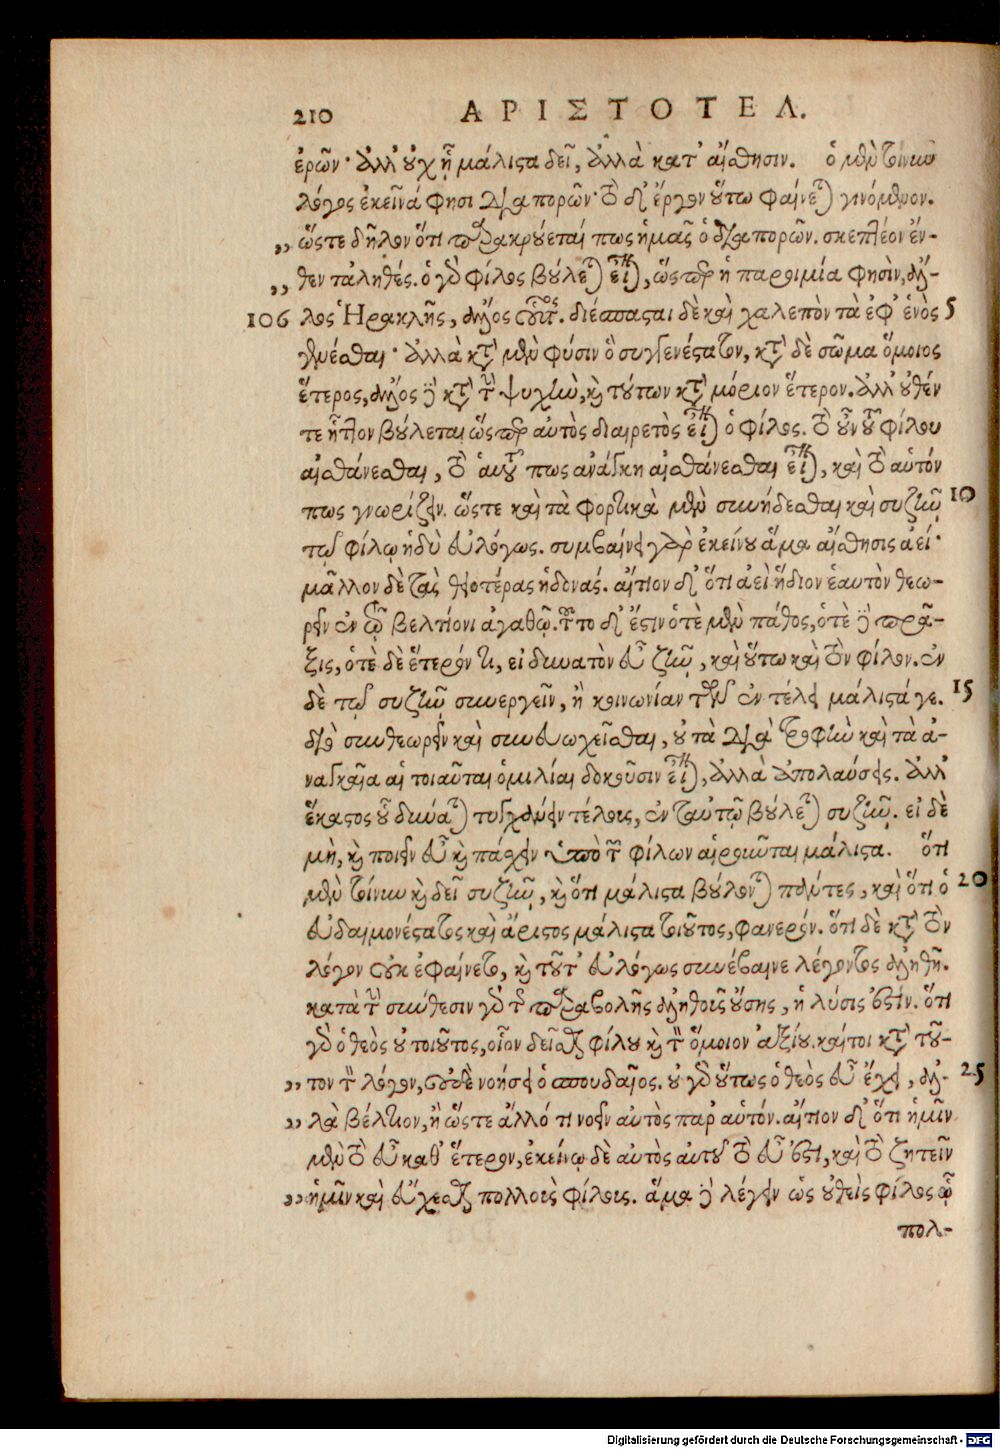 210 ΑΡΙΣΤΟΤΕΛ.
ἐρῶν· ἀλλ' οὐχ ᾗ μάλιστα δεῖ, ἀλλὰ κατ' αἴσθησιν. ὁ μὲν τοίνυν
λόγος ἐκεῖνά φησι διαπορῶν· τὸ δ' ἔργον οὕτω φαίνεται γινόμενον.
,, ὥστε δῆλον ὅτι παρακρούεταί πως ἡμᾶς ὁ διαπορῶν. σκεπτέον ἔν-
,, θεν τἀληθές. ὁ γὰρ φίλος βούλεται εἶναι, ὥσπερ ἡ παροιμία φησὶν, ἄλ-
106 λος Ἡρακλῆς, ἄλλος οὗτος. διέσπασται δὲ καὶ χαλεπὸν τὰ ἐφ' ἑνὸς 5
γενέσθαι· ἀλλὰ κατὰ μὲν φύσιν ὃ συγγενέστατον, κατὰ δὲ σῶμα ὅμοιος
ἕτερος, ἄλλος δὲ κατὰ τὴν ψυχὴν, καὶ τούτων κατὰ μόριον ἕτερον. ἀλλ' οὐθέν
τε ἧττον βούλεται ὥσπερ αὐτὸς διαιρετὸς εἶναι ὁ φίλος. τὸ οὖν τοῦ φίλου
αἰσθάνεσθαι, τὸ αὑτοῦ πως ἀνάγκη αἰσθάνεσθαι εἶναι, καὶ τὸ αὑτόν
πως γνωρίζειν. ὥστε καὶ τὰ φορτικὰ μὲν συνήδεσθαι καὶ συζῆν 10
τῷ φίλῳ ἡδὺ εὐλόγως. συμβαίνει γὰρ ἐκείνου ἅμα αἴσθησις ἀεί·
μᾶλλον δὲ τὰς θειοτέρας ἡδονάς. αἴτιον δ' ὅτι ἀεὶ ἥδιον ἑαυτὸν θεω-
ρεῖν ἐν τῷ βελτίονι ἀγαθῷ. τοῦτο δ' ἔστιν ὁτὲ μὲν πάθος, ὁτὲ δὲ πρᾶ-
ξις, ὁτὲ δὲ ἕτερόν τι, εἰ δυνατὸν εὖ ζῆν, καὶ οὕτω καὶ τὸν φίλον. ἐν
δὲ τῷ συζῆν συνεργεῖν, ἡ κοινωνίαν τῶν ἐν τέλει μάλιστά γε. 15
διὸ συνθεωρεῖν καὶ συνευωχεῖσθαι, οὐ τὰ διὰ τροφὴν καὶ τὰ ἀ-
ναγκαῖα αἱ τοιαῦται ὁμιλίαι δοκοῦσιν εἶναι, ἀλλὰ ἀπολαύσεις. ἀλλ'
ἕκαστος οὗ δύναται τυγχάνειν τέλους, ἐν ταὐτῷ βούλεται συζῆν. εἰ δὲ
μὴ, καὶ ποιεῖν εὖ καὶ πάσχειν ὑπὸ τῶν φίλων αἱροῦνται μάλιστα. ὅτι
μὲν τοίνυν καὶ δεῖ συζῆν, καὶ ὅτι μάλιστα βούλονται πάντες, καὶ ὅτι ὁ 20
εὐδαιμονέστατος καὶ ἄριστος μάλιστα τοιοῦτος, φανερόν. ὅτι δὲ κατὰ τὸν
λόγον οὐκ ἐφαίνετο, καὶ τοῦτ' εὐλόγως συνέβαινε λέγοντος ἀληθῆ.
κατὰ τὴν σύνθεσιν γὰρ τῆς παραβολῆς ἀληθοῦς οὔσης, ἡ λύσις ἐστίν. ὅτι
γὰρ ὁ θεὸς οὐ τοιοῦτος, οἷον δεῖσθαι φίλου καὶ τὸν ὅμοιον ἀξίου. καίτοι κατὰ τοῦ-
,, τον τὸν λόγον, οὐδὲ νοήσει ὁ σπουδαῖος. οὐ γὰρ οὕτως ὁ θεὸς εὖ ἔχει, ἀλ- 25
,, λὰ βέλτιον, ἢ ὥστε ἄλλό τι νοεῖν αὐτὸς παρ' αὑτόν. αἴτιον δ' ὅτι ἡμῖν
μὲν τὸ εὖ καθ' ἕτερον, ἐκείνῳ δὲ αὐτὸς αὑτοῦ τὸ εὖ ἐστι, καὶ τὸ ζητεῖν
,, ἡμῖν καὶ εὔχεσθαι πολλοὺς φίλους. ἅμα δὲ λέγειν ὡς οὐθεὶς φίλος ᾧ
πολ-
Digitalisierung gefördert durch die Deutsche Forschungsgemeinschaft - DFG